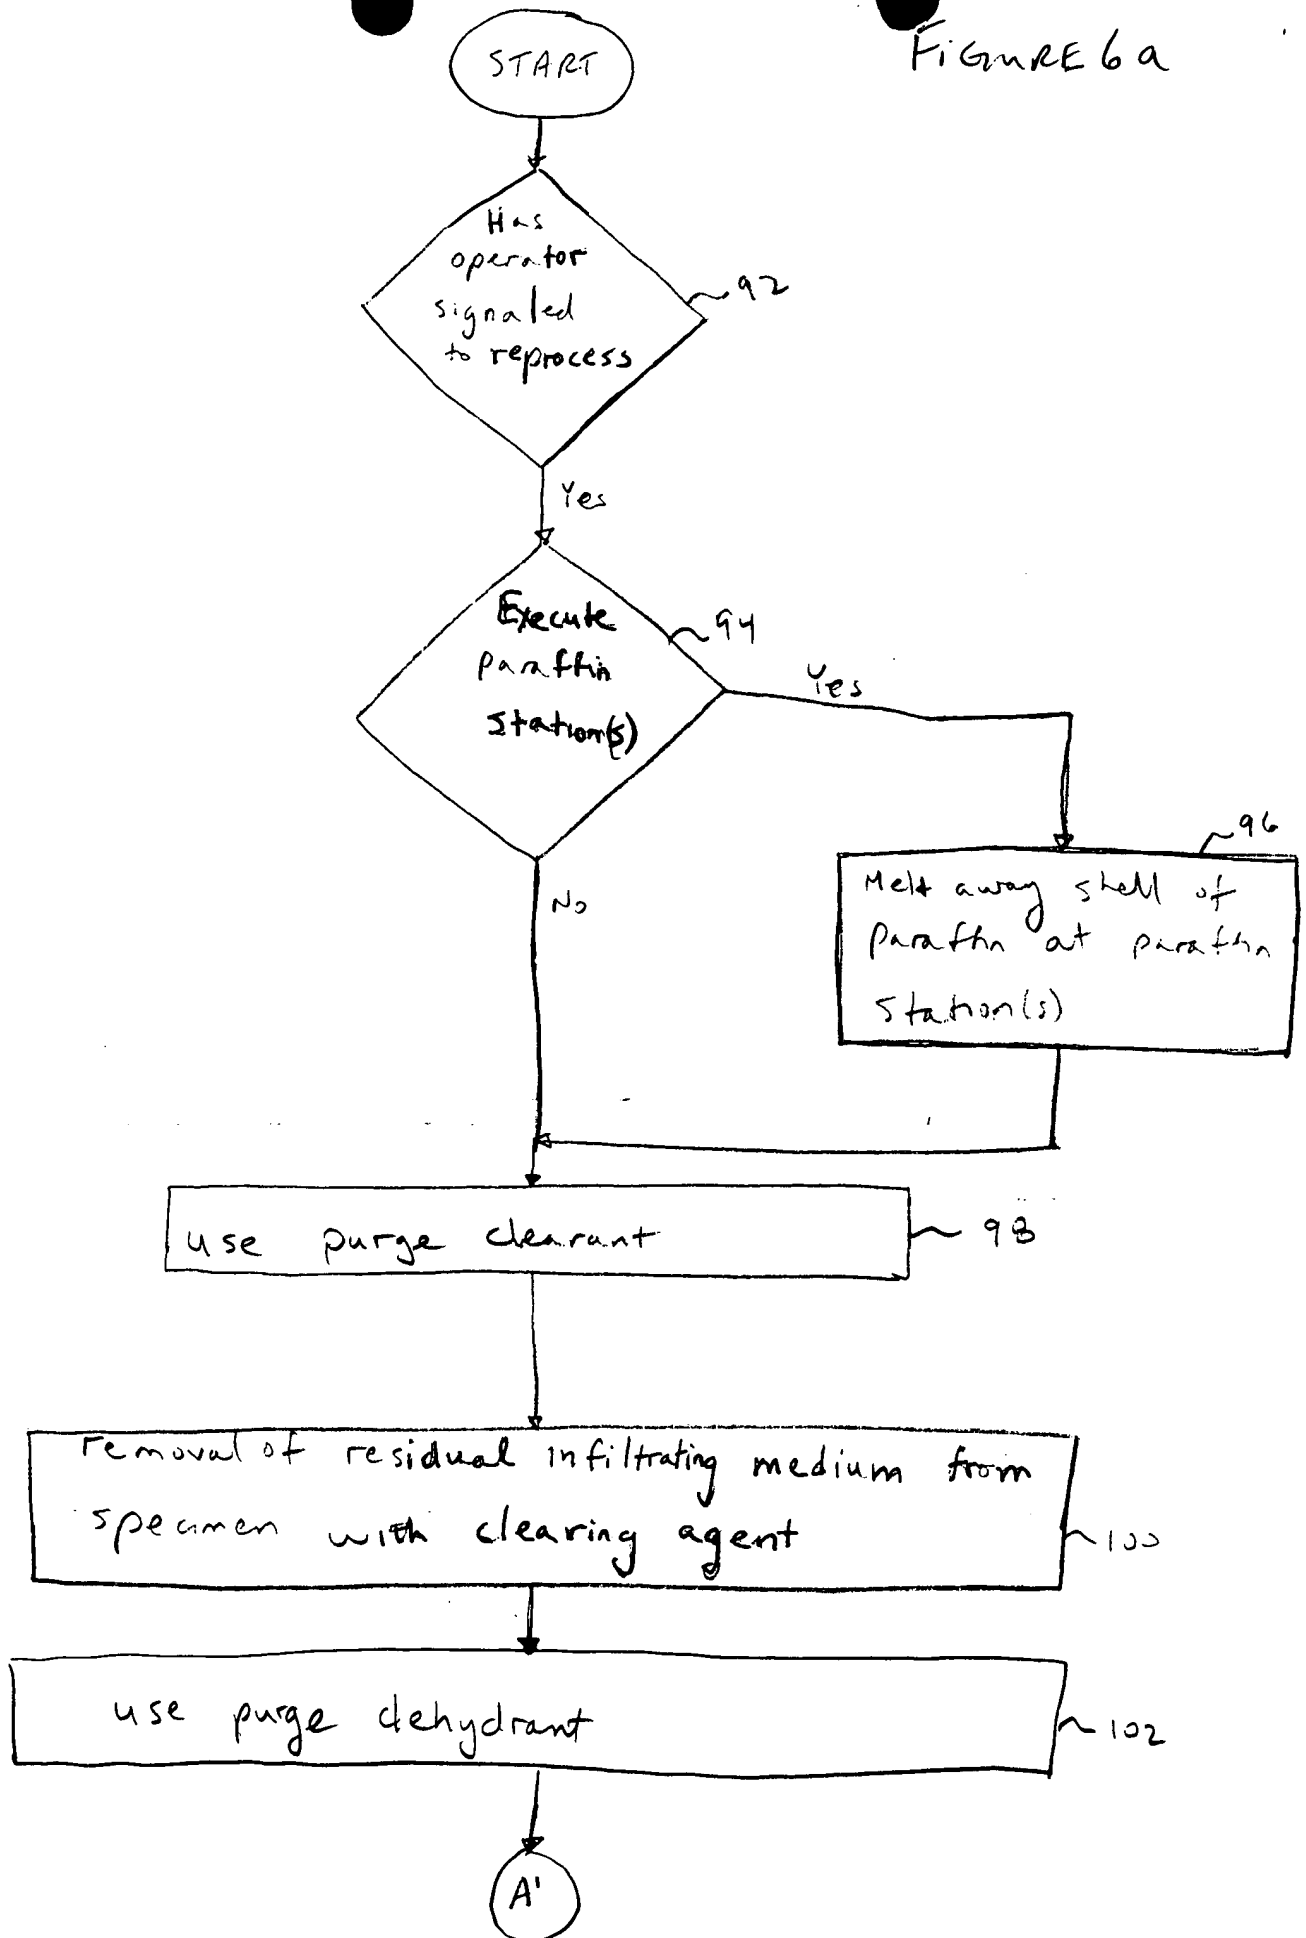 FIGURE 6a
START
Has
operator
signaled
to reprocess
92
Yes
Execute
paraffin
station(s)
94
Yes
96
Melt away shell of
Paraffin at paraffin
station(s)
No
use purge clearant
98
removal of residual infiltrating medium from
specimen with clearing agent
100
use purge dehydrant
102
A'